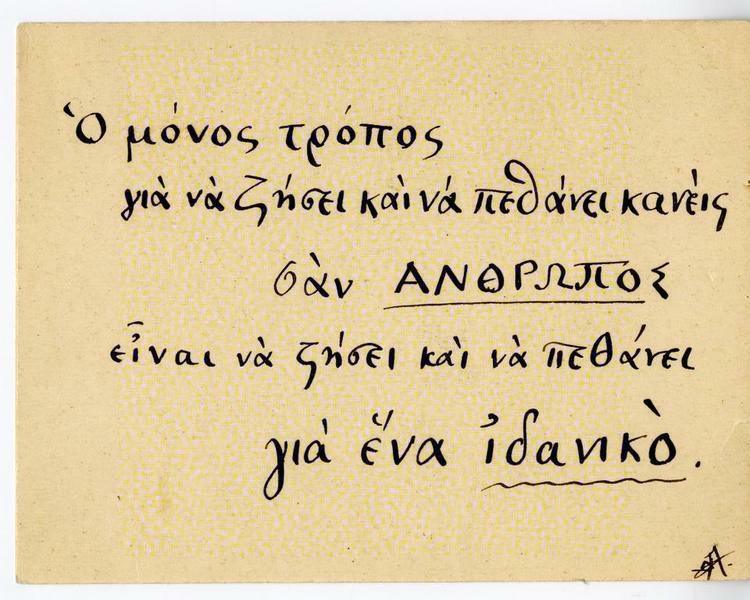 Ὁ μόνος τρόπος
γιὰ νὰ ζήσει καὶ νά πεθάνει κανὲις
σὰν ΑΝΘΡΩΠΟΣ
εἶναι νὰ ζήσει καὶ νὰ πεθάνει
γιὰ ἕνα ἰδανικὸ.